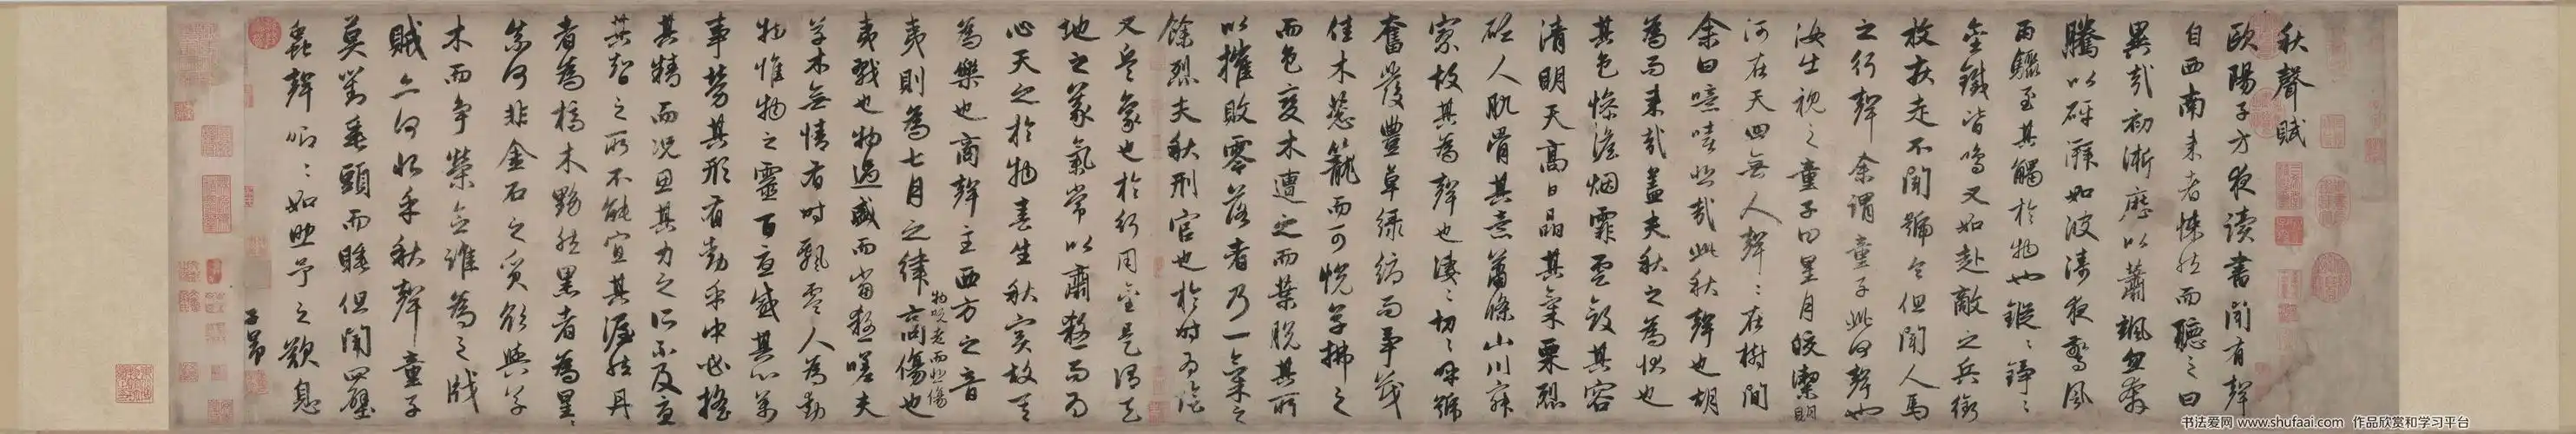 秋聲賦
歐陽子方夜讀書聞有聲
自西南来者悚然而聽之曰
異哉初淅瀝以蕭颯忽奔
騰以砰湃如波濤夜驚風
雨驟至其觸於物也鏦〻錚〻
金鐵皆鳴又如赴敵之兵銜
枚疾走不聞號令但聞人馬
之行聲余謂童子此何聲也
汝出視之童子曰星月皎潔明
河在天四無人聲〻在樹間
余曰噫嘻悲哉此秋聲也胡
為而来哉蓋夫秋之為狀也
其色慘澹烟霏雲斂其容
清明天高日晶其氣栗烈
砭人肌骨其意蕭條山川寂
寥故其為聲也淒〻切〻呼號
奮發豐草緑縟而爭茂
佳木葱籠而可悅草拂之
而色變木遭之而葉脱其所
以摧敗零落者乃一氣之
餘烈夫秋刑官也於時為陰
又兵象也於行用金是謂天
地之義氣常以肅殺而為
心天之於物春生秋實故其
為樂也商聲主西方之音
夷則為七月之律商傷也
物既老而悲傷
夷戮也物過盛而當殺嗟夫
草木無情有時飄零人為動
物惟物之靈百憂感其心萬
事勞其形有動乎中必搖
其精而況思其力之所不及憂
其智之所不能宜其渥然丹
者為槁木黟然黑者為星〻
奈何非金石之質欲與草
木而争榮念誰為之戕
賊亦何恨乎秋聲童子
莫對垂頭而睡但聞四壁
蟲聲唧〻如助予之歎息
子昂
书法爱网 www.shufaai.com 作品欣赏和学习平台